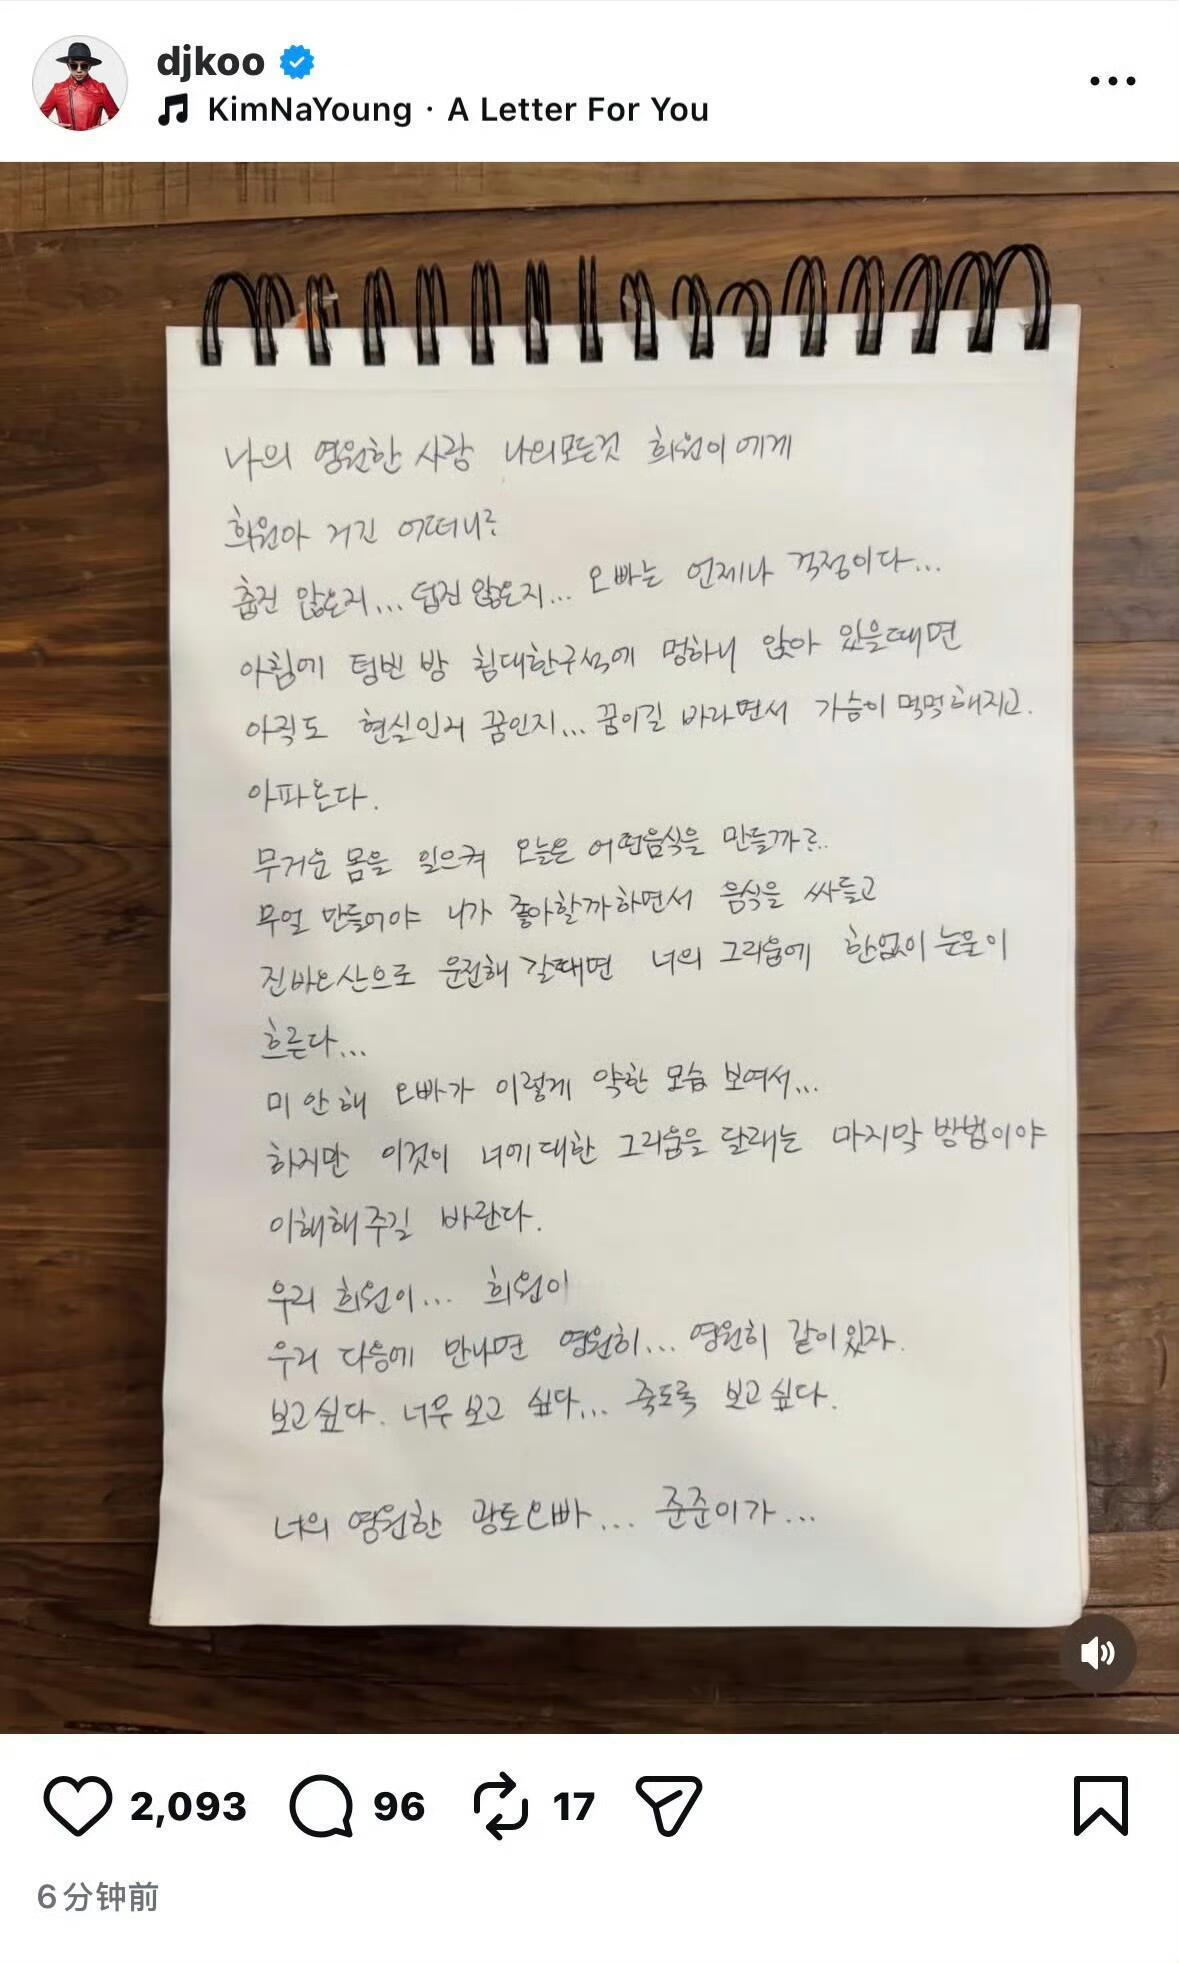 djkoo
KimNaYoung · A Letter For You
나의 영원한 사랑 나의모든것 희원이에게
희원아 거긴 어떠니?
춥진 않은지... 덥진 않은지... 오빠는 언제나 걱정이다...
아침에 텅빈 방 침대한구석에 멍하니 앉아 있을때면
아직도 현실인지 꿈인지... 꿈이길 바라면서 가슴이 먹먹해지고.
아파온다.
무거운 몸을 일으켜 오늘은 어떤음식을 만들까?..
무얼 만들어야 니가 좋아할까하면서 음식을 싸들고
진바오산으로 운전해 갈때면 너의 그리움에 한없이 눈물이
흐른다...
미안해 오빠가 이렇게 약한 모습 보여서...
하지만 이것이 너에대한 그리움을 달래는 마지막 방법이야
이해해주길 바란다.
우리 희원이... 희원이
우리 다음에 만나면 영원히... 영원히 같이있자.
보고싶다. 너무 보고 싶다... 죽도록 보고싶다.
너의 영원한 광토오빠... 준준이가...
2,093 96 17
6分钟前